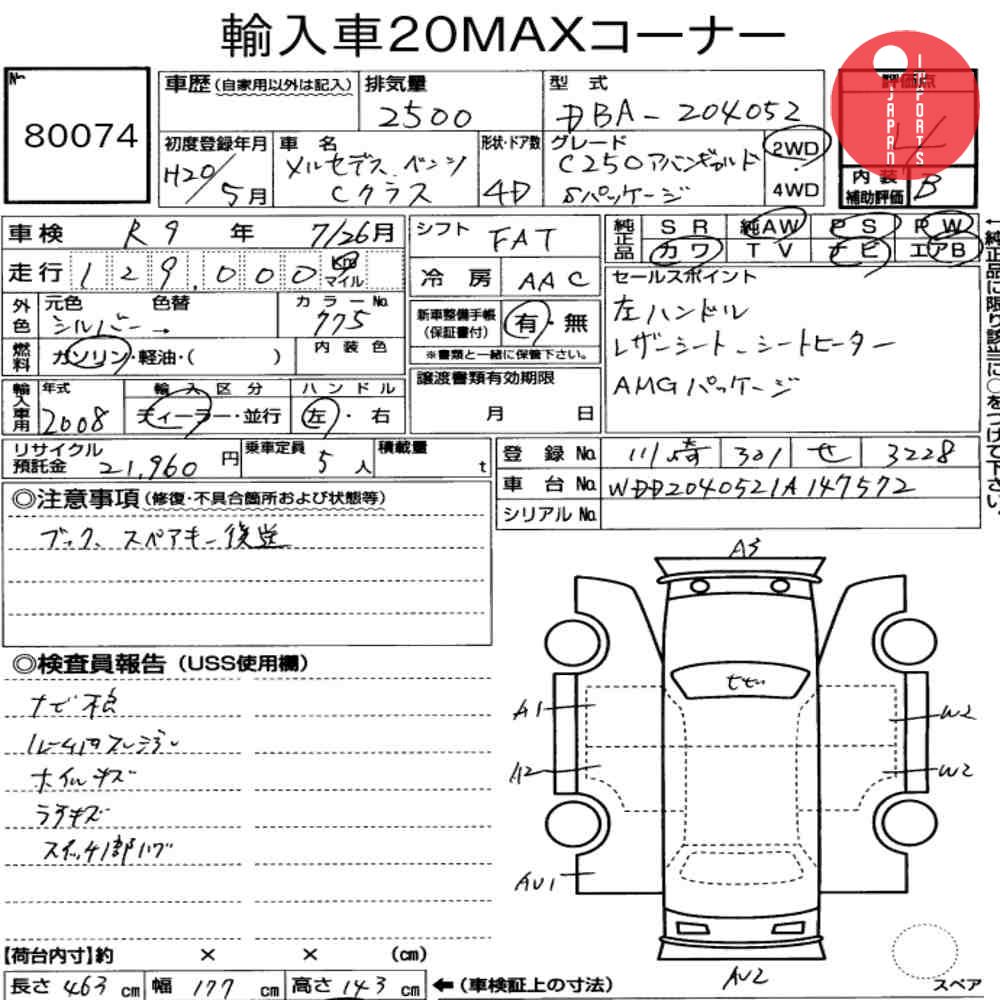 輸入車20MAXコーナー
JAPAN IMPORTS
No.
80074
車歴(自家用以外は記入)
排気量
2500
型式
DBA-204052
評価点
4
初度登録年月
H20/5月
車名
メルセデス、ベンツ
Cクラス
形状・ドア数
4D
グレード
C250アバンギャルド
Sパッケージ
2WD
4WD
内装
補助評価
B
車検 R9年 7/26月
走行 129,000 Km マイル
シフト FAT
冷房 AAC
純正品
SR 純AW PS PW
カワ TV ナビ エアB
←純正品に限り該当に○をつけて下さい。
外色
元色 色替
シルバー→
カラーNo.
775
燃料
ガソリン・軽油・( )
内装色
新車整備手帳
(保証書付)
有・無
※書類と一緒に保管下さい。
セールスポイント
左ハンドル
レザーシート、シートヒーター
AMGパッケージ
輸入車用
年式
2008
輸入区分
ディーラー・並行
ハンドル
左・右
譲渡書類有効期限
月 日
リサイクル
預託金 21,960円
乗車定員
5人
積載量
t
登録No. 川崎 301 せ 3228
車台No. WDD2040521A147572
シリアルNo.
◎注意事項(修復・不具合箇所および状態等)
ブック、スペアキー後送
◎検査員報告(USS使用欄)
ナビ不良
ホイルキズ
スイッチ部ハゲ
A3
A1
A2
AU1
W2
W2
AU2
スペア
【荷台内寸】約 × × (cm)
長さ463cm 幅177cm 高さ143cm ←(車検証上の寸法)